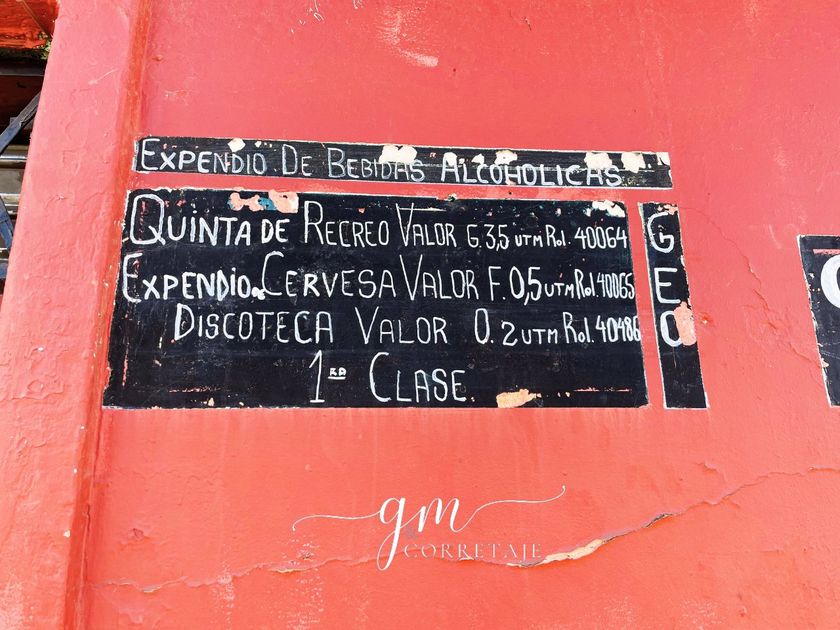 EXPENDIO DE BEBIDAS ALCOHOLICAS
QUINTA DE RECREO VALOR G. 3,5 UTM Rol. 40064
EXPENDIO DE CERVESA VALOR F. 0,5 UTM Rol. 40065
DISCOTECA VALOR O. 2 UTM Rol. 40486
1RA CLASE
G
E
O
gm
CORRETAJE